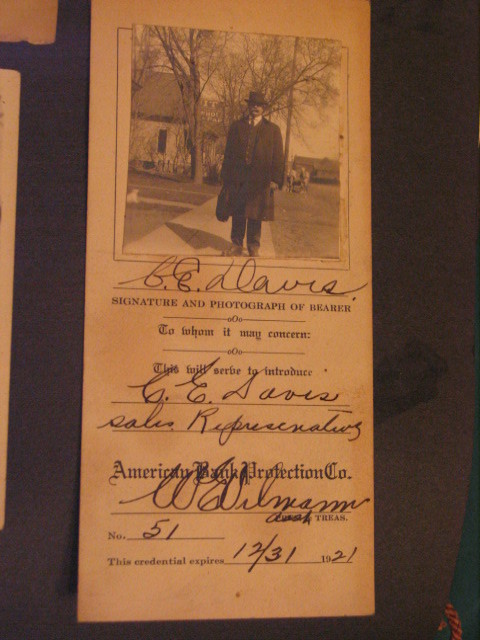 C. E. Davis.
SIGNATURE AND PHOTOGRAPH OF BEARER
To whom it may concern:
This will serve to introduce
C. E. Davis
Sales Represenative
American Bank Protection Co.
TREAS.
No. 51
This credential expires 12/31 1921